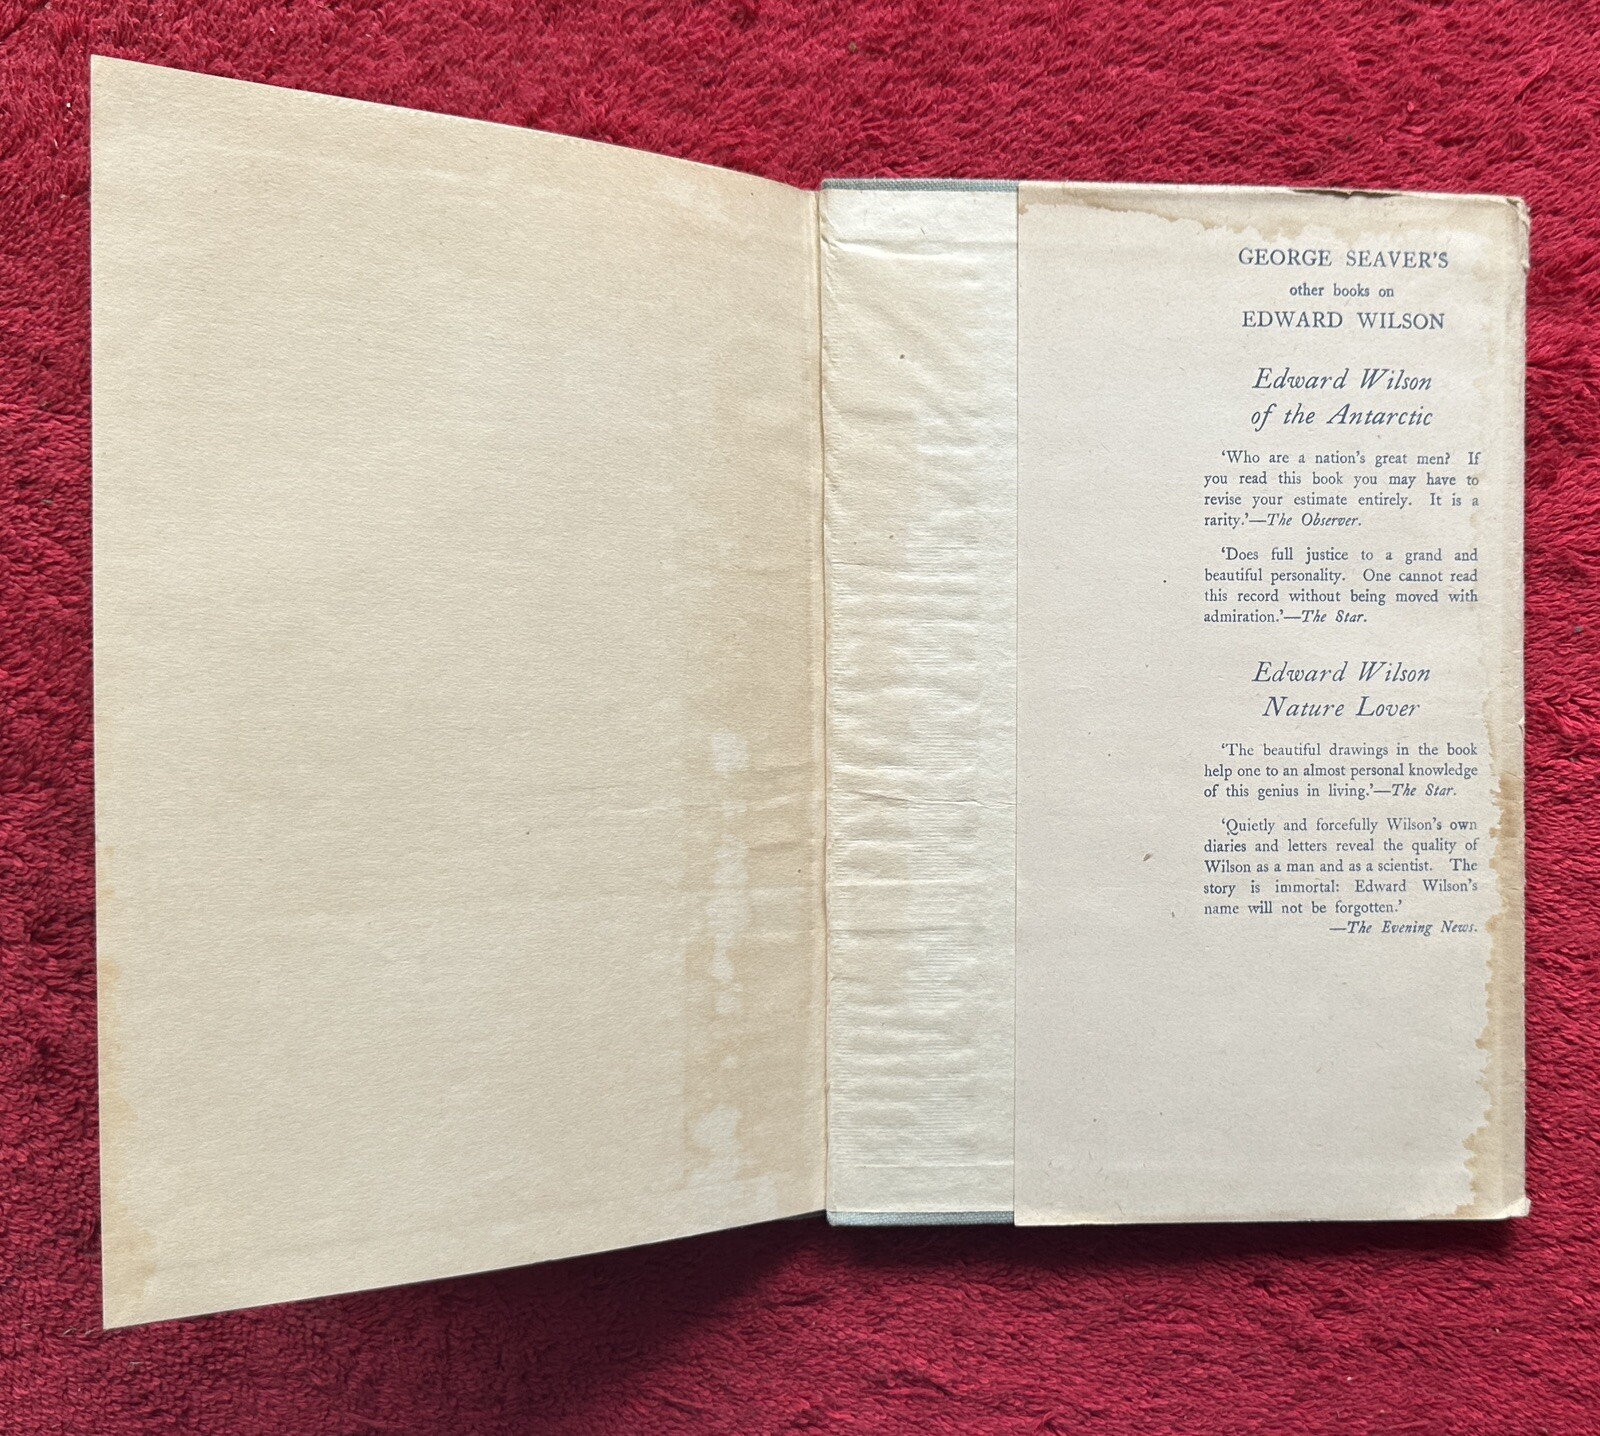 GEORGE SEAVER'S
other books on
EDWARD WILSON
Edward Wilson
of the Antarctic
'Who are a nation's great men? If
you read this book you may have to
revise your estimate entirely. It is a
rarity.'—The Observer.
'Does full justice to a grand and
beautiful personality. One cannot read
this record without being moved with
admiration.'—The Star.
Edward Wilson
Nature Lover
'The beautiful drawings in the book
help one to an almost personal knowledge
of this genius in living.'—The Star.
'Quietly and forcefully Wilson's own
diaries and letters reveal the quality of
Wilson as a man and as a scientist. The
story is immortal: Edward Wilson's
name will not be forgotten.'
—The Evening News.